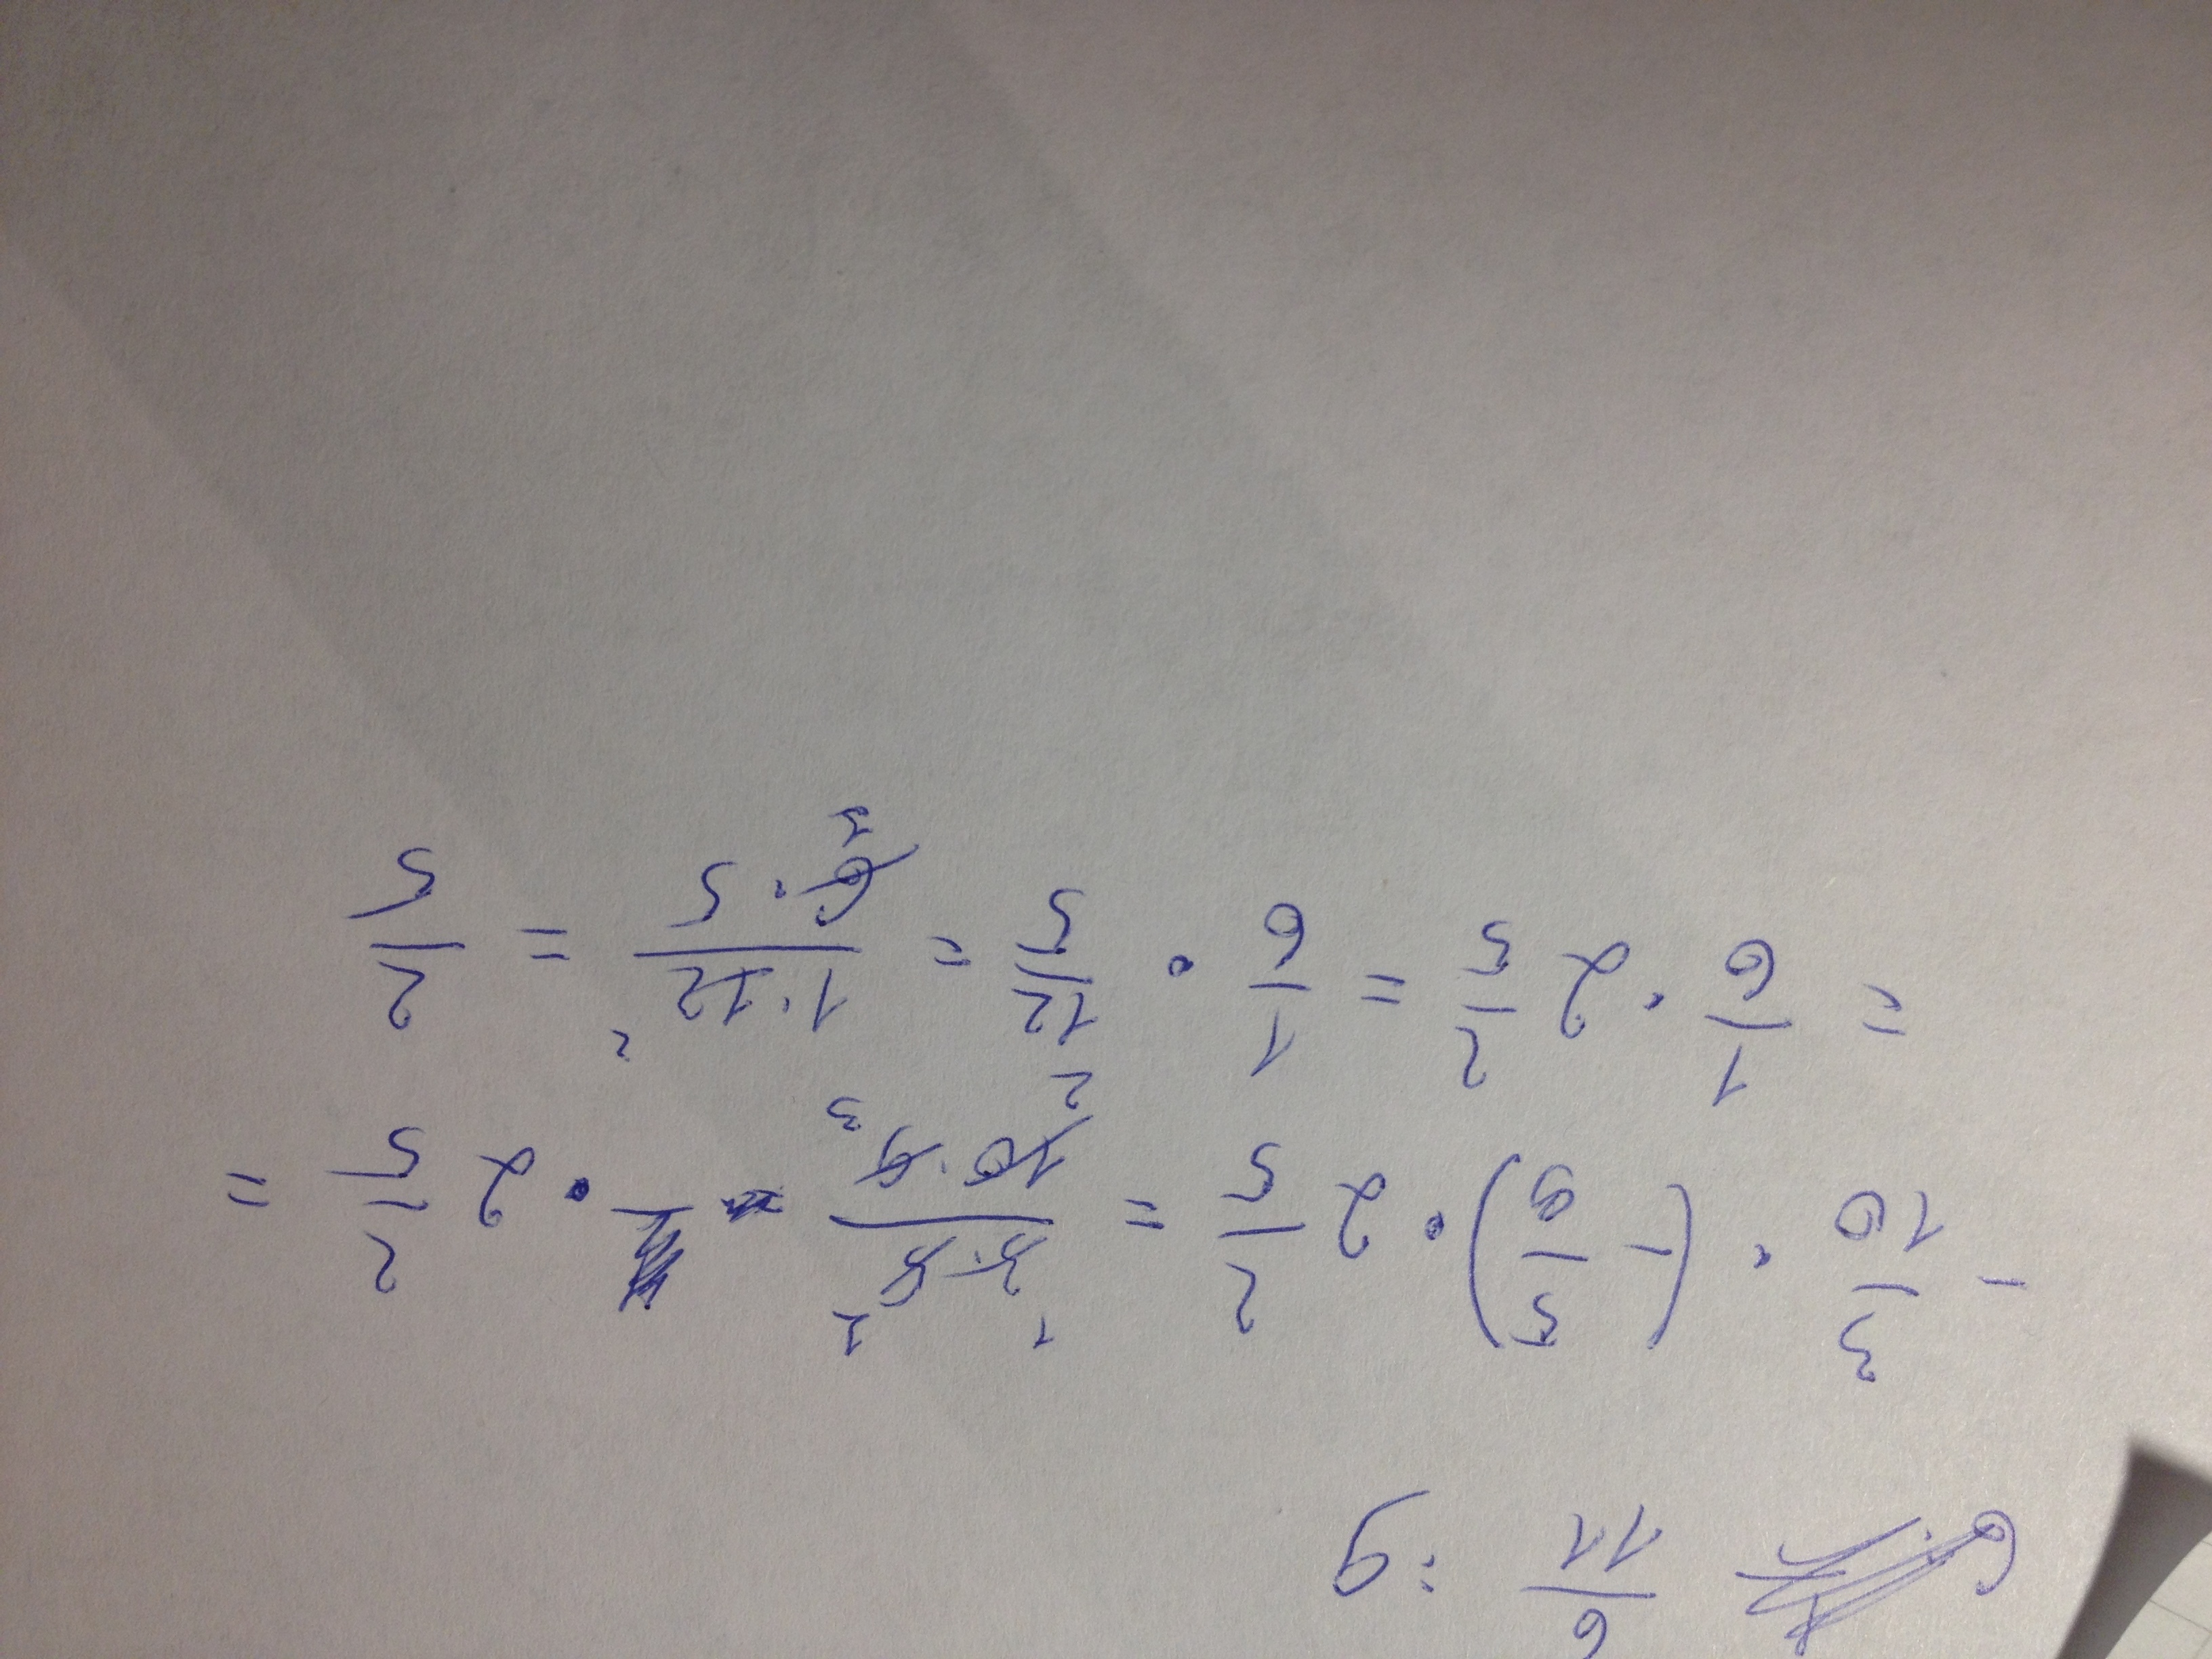 6/11 : 9
- 3/10 · (- 5/9) · 2 2/5 = 3·5/10·9 · 2 2/5 =
= 1/6 · 2 2/5 = 1/6 · 12/5 = 1·12/6·5 = 2/5